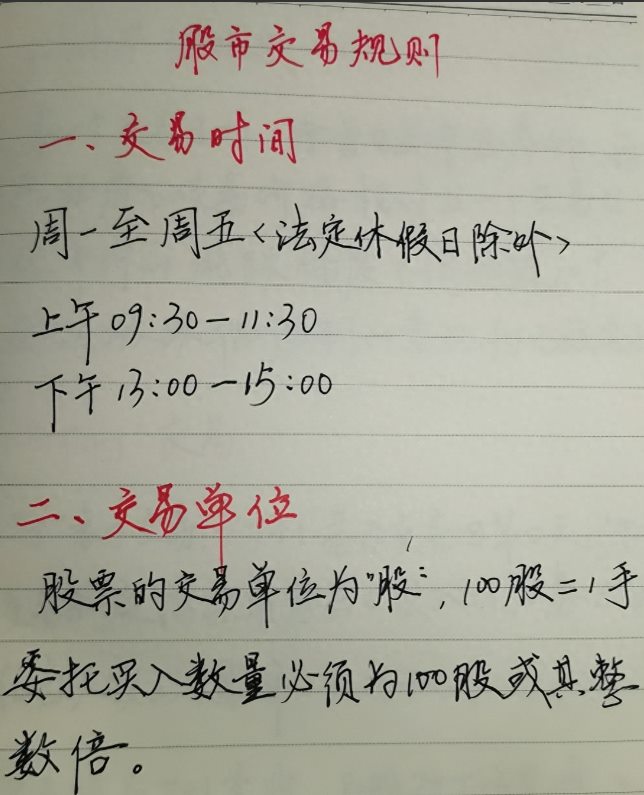 股市交易规则
一、交易时间
周一至周五<法定休假日除外>
上午09:30-11:30
下午13:00-15:00
二、交易单位
股票的交易单位为"股",100股=1手
委托买入数量必须为100股或其整
数倍。